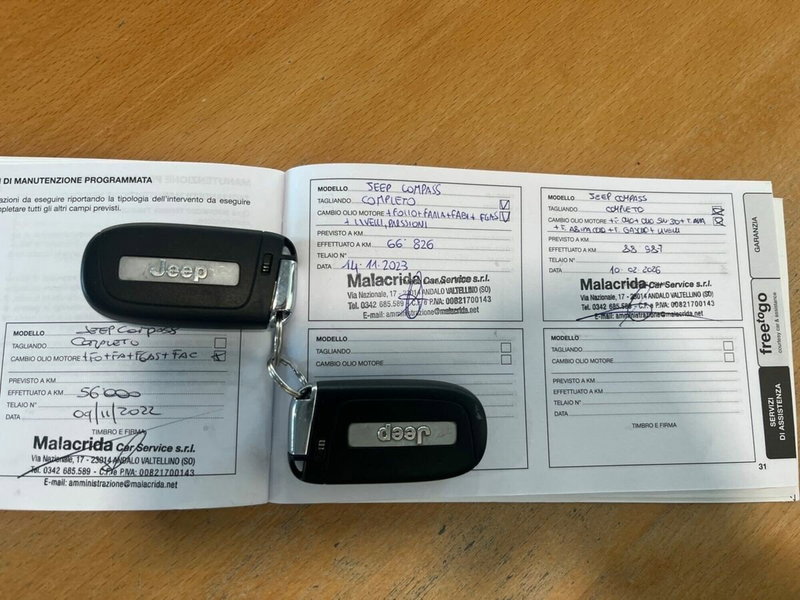 I DI MANUTENZIONE PROGRAMMATA
azioni da eseguire riportando la tipologia dell'intervento da eseguire
mpletare tutti gli altri campi previsti.
Jeep
MODELLO JEEP COMPASS
TAGLIANDO COMPLETO
CAMBIO OLIO MOTORE +FO+FA+FGAS+FAC
PREVISTO A KM
EFFETTUATO A KM 56000
TELAIO N°
DATA 09/11/2022
TIMBRO E FIRMA
Malacrida Car Service s.r.l.
Via Nazionale, 17 - 23014 ANDALO VALTELLINO (SO)
Tel. 0342 685.589 - C.F. e P.IVA: 00821700143
E-mail: amministrazione@malacrida.net
MODELLO JEEP COMPASS
TAGLIANDO COMPLETO
CAMBIO OLIO MOTORE
+ LIVELLI, PRESSIONI
PREVISTO A KM
EFFETTUATO A KM 66 826
TELAIO N°
DATA 14.11.2023
Malacrida Car Service s.r.l.
Via Nazionale, 17 - 23014 ANDALO VALTELLINO (SO)
Tel. 0342 685.589 - C.F. e P.IVA: 00821700143
E-mail: amministrazione@malacrida.net
MODELLO
TAGLIANDO
CAMBIO OLIO MOTORE
Jeep
MODELLO JEEP COMPASS
TAGLIANDO COMPLETO
CAMBIO OLIO MOTORE
PREVISTO A KM
EFFETTUATO A KM
TELAIO N°
DATA 10.02.2026
Malacrida Car Service s.r.l.
Via Nazionale, 17 - 23014 ANDALO VALTELLINO (SO)
Tel. 0342 685.589 - C.F. e P.IVA: 00821700143
E-mail: amministrazione@malacrida.net
MODELLO
TAGLIANDO
CAMBIO OLIO MOTORE
PREVISTO A KM
EFFETTUATO A KM
TELAIO N°
DATA
TIMBRO E FIRMA
31
GARANZIA
freetogo
courtesy car & assistance
SERVIZI
DI ASSISTENZA